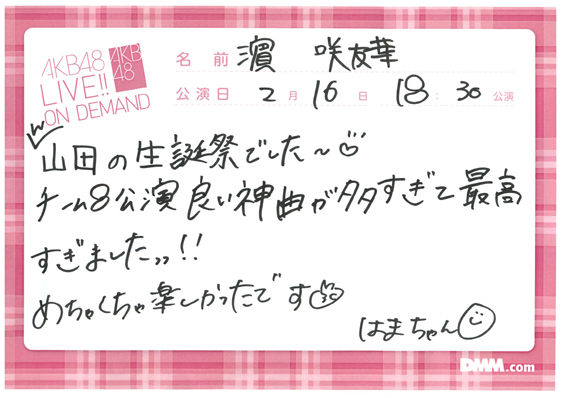 AKB48
LIVE!!
ON DEMAND
AKB
48
名前 濵 咲友華
公演日 2月 16日 18:30 公演
山田の生誕祭でした〜
チーム8公演良い神曲が多すぎて最高
すぎましたッッ!!
めちゃくちゃ楽しかったです
はまちゃん
DMM.com